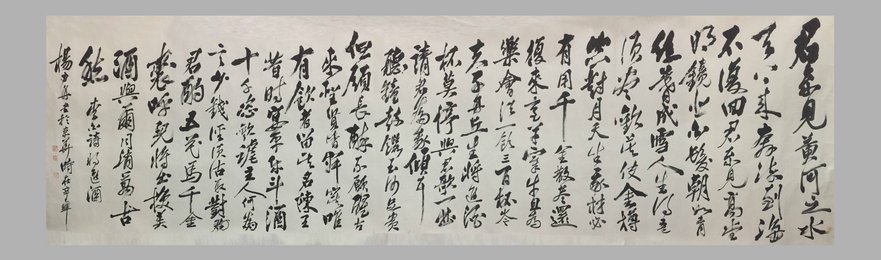 君不見黃河之水
天上來奔流到海
不復回君不見高堂
明鏡悲白髮朝如青
絲暮成雪人生得意
須盡歡莫使金樽
空對月天生我材必
有用千金散盡還
復來烹羊宰牛且為
樂會須一飲三百杯岑
夫子丹丘生將進酒
杯莫停與君歌一曲
請君為我傾耳
聽鐘鼓饌玉何足貴
但願長醉不願醒古
來聖賢皆寂寞唯
有飲者留其名陳王
昔時宴平樂斗酒
十千恣歡謔主人何為
言少錢徑須沽取對
君酌五花馬千金
裘呼兒將出換美
酒與爾同消萬古
愁
李白詩將進酒
楊 書於京華時在